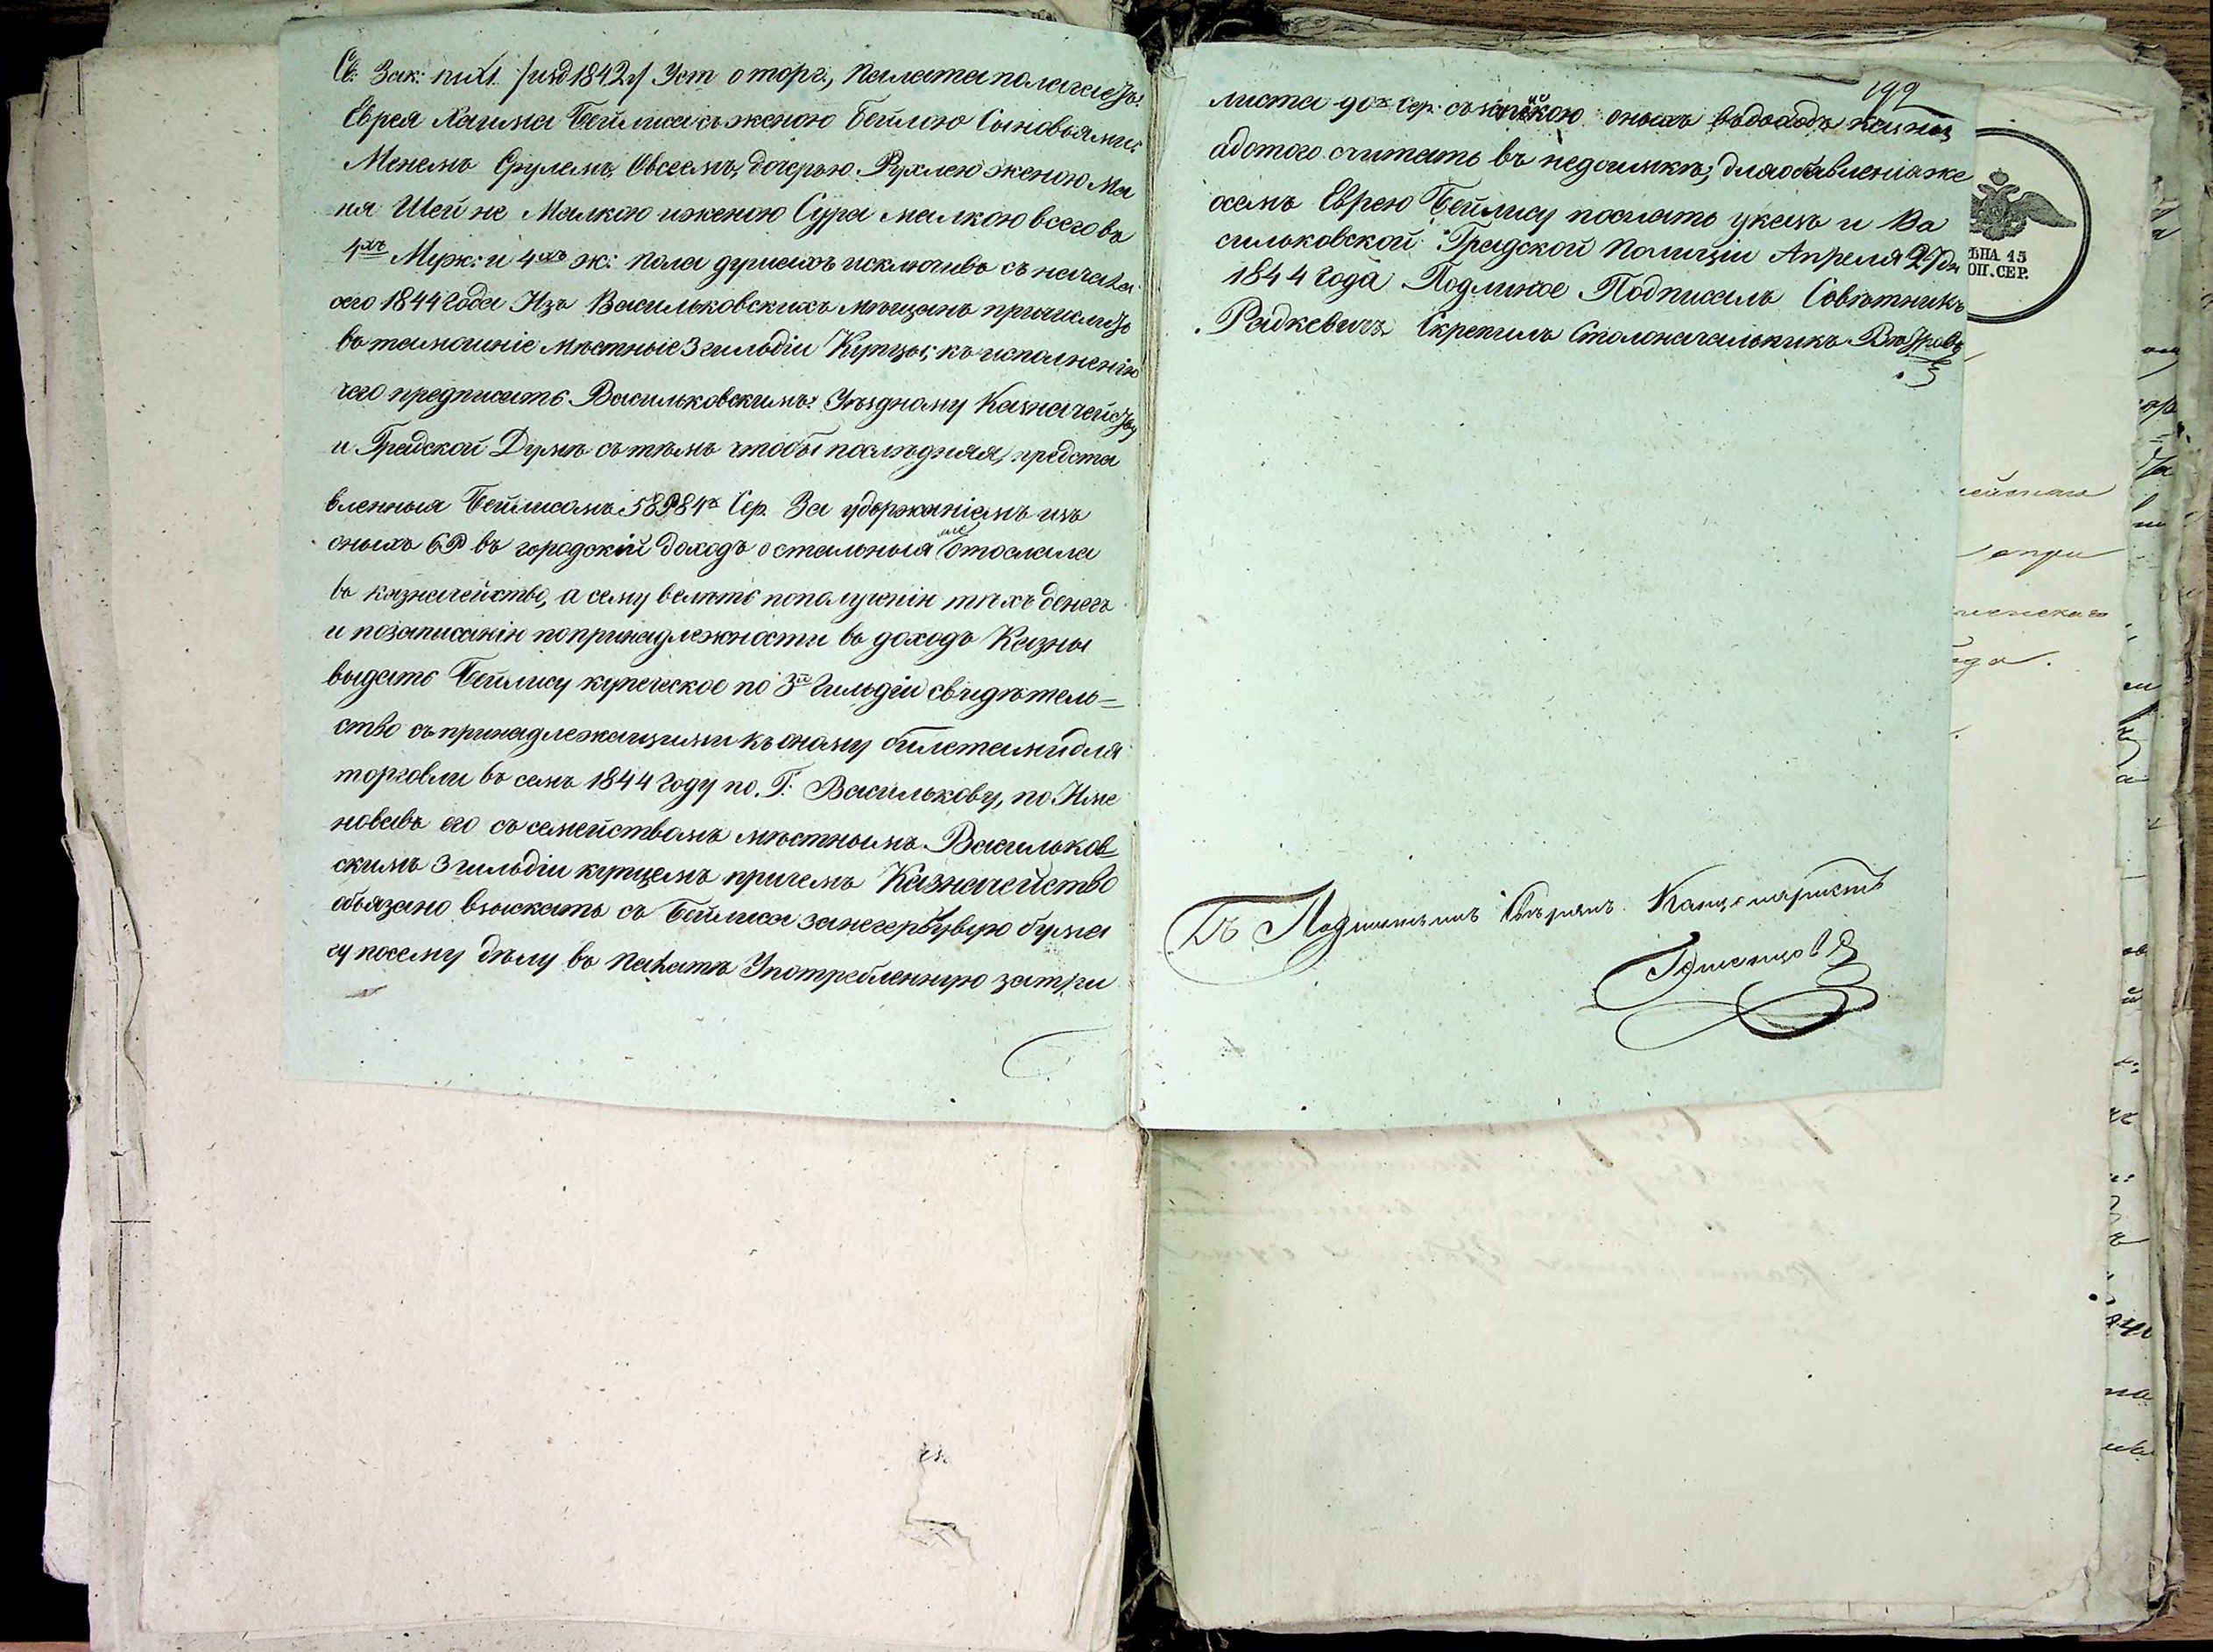 Св: Зак: /изд 1842 г/ Уст о торг., Палата полагаетъ:
Еврея Хаима Бейлиса съ женою Бейлою Сыновьями:
Менемъ Срулемъ, Овсеемъ, дочерью Рухлею женою Ме
ня Шейне Малкою и женою Сура малкою всего въ
4хъ Муж: и 4хъ ж: пола душахъ исключивъ съ начала
сего 1844 года Изъ Васильковскихъ мещанъ причислить
въ тамошніе местные 3 гильдіи Купцы; къ исполненію
чего предписать Васильковскимъ: Уездному Казначейству
и Градской Думе съ темъ чтобы последняя, предста
вленныя Бейлисомъ 58 Р 84 к Сер. За удержаніемъ изъ
оныхъ 6 Р въ городскій доходъ остальныя отослала
въ казначейство, а сему велеть по полученіи техъ денегъ
и по записаніи по принадлежности въ доходъ Казны
выдать Бейлису купеческое по 3й Гильдіи свидетель=
ство съ принадлежащими къ оному билетами для
торговли въ семъ 1844 году по Г: Василькову, по Име
новавъ его съ семействомъ местнымъ Васильков=
скимъ 3 гильдіи купцемъ причемъ Казначейство
обязано взыскать съ Бейлиса за негербувую бума
гу по сему делу въ Палате Употребленную за три
199
листа 90 к Сер: съ оныхъ въ доходъ казны
а до того считать въ недоимке; для объявленія же
о семъ Еврею Бейлису послать указъ и Ва
сильковской Градской Полиціи Апреля 27 дня
1844 года Подлинное Подписалъ Советникъ
Радкевичъ Скрепилъ Столоначальникъ
Съ Подлиннымъ Верилъ Канцеляристъ
ЦЕНА 15
КОП. СЕР.